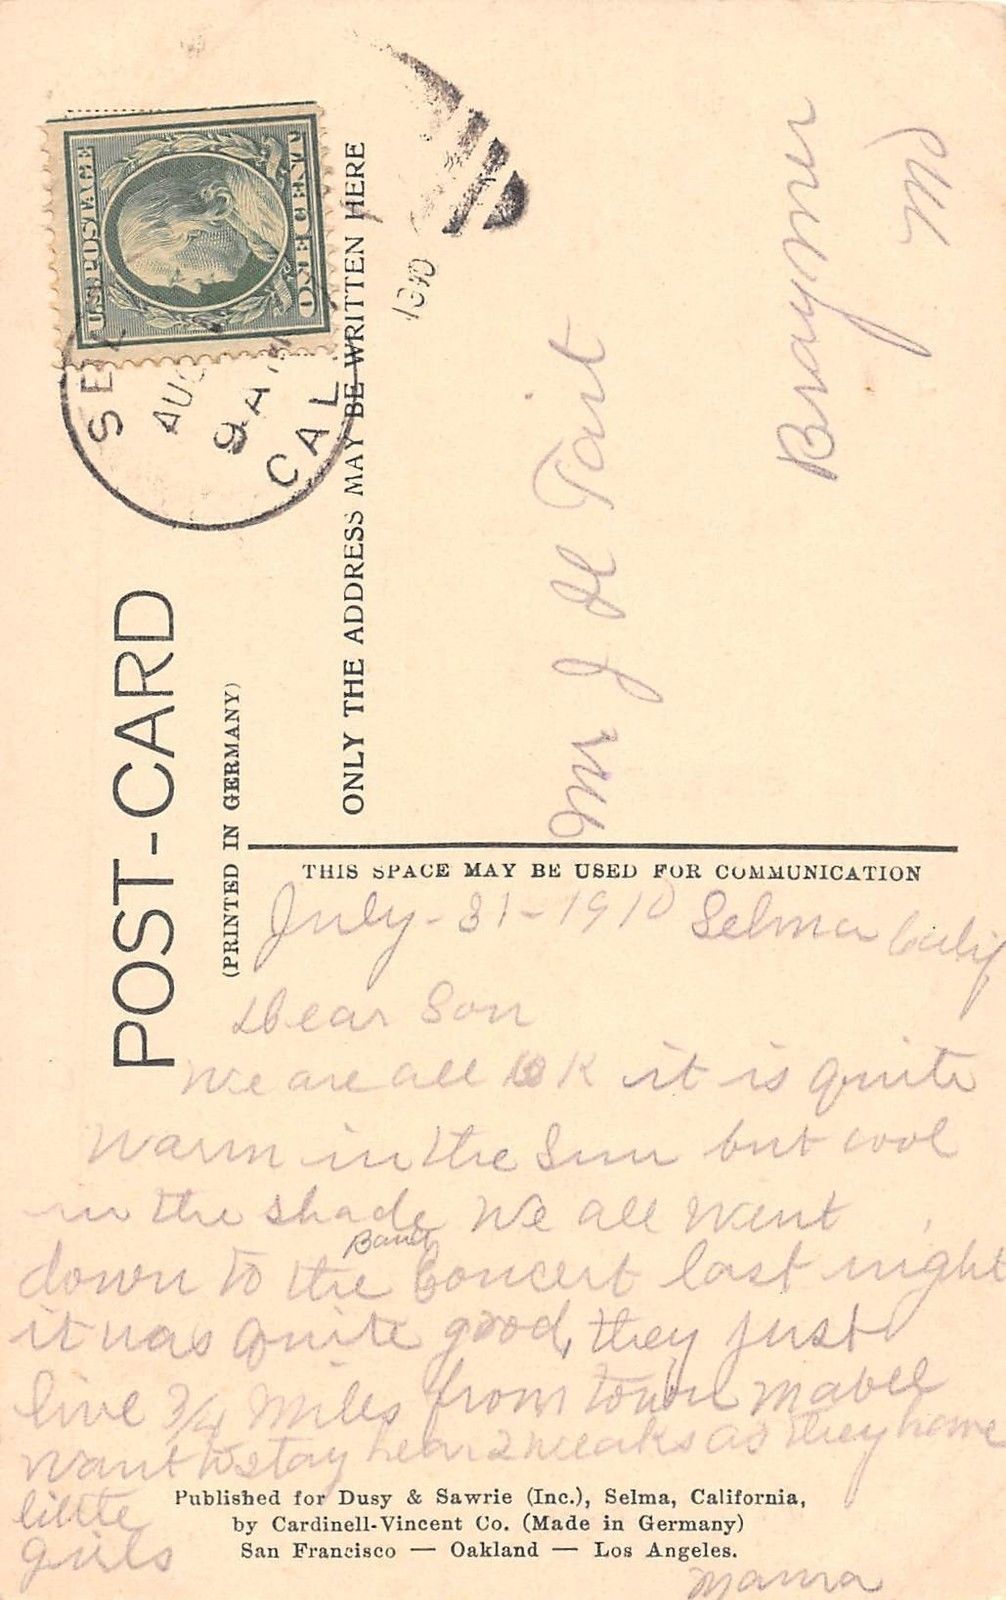 U.S. POSTAGE
ONE CENT
SEL
AUG
9 A M
CAL
1910
POST-CARD
(PRINTED IN GERMANY)
ONLY THE ADDRESS MAY BE WRITTEN HERE
Mr J H Tait
Braymer
Mo
THIS SPACE MAY BE USED FOR COMMUNICATION
July-31-1910 Selma Calif
Dear Son
We are all O K it is quite
warm in the Sun but cool
in the shade We all went
down to the Band Concert last night
it was quite good, they just
live 3/4 Miles from town Mabel
want to stay hear 2 weaks as they have
little
girls
Published for Dusy & Sawrie (Inc.), Selma, California,
by Cardinell-Vincent Co. (Made in Germany)
San Francisco — Oakland — Los Angeles.
Mama